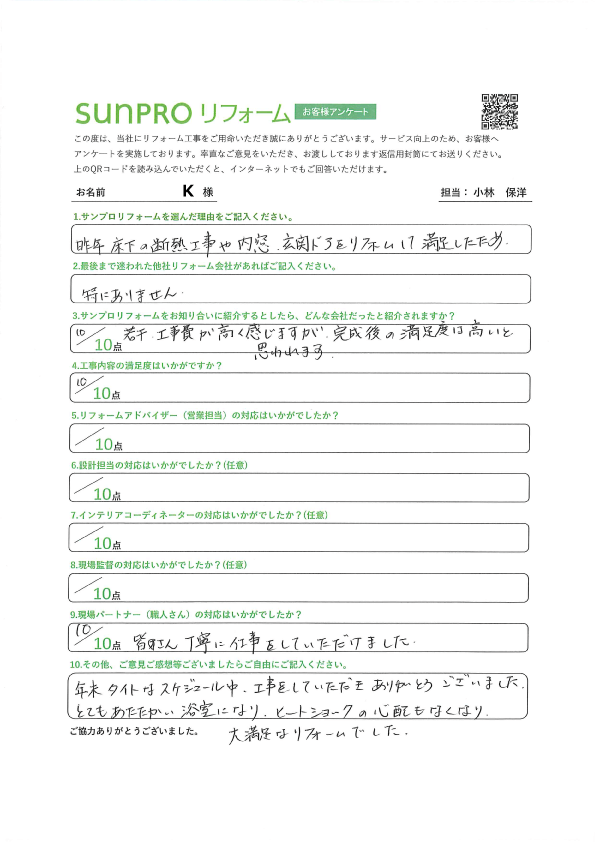 sunPRO リフォーム お客様アンケート
この度は、当社にリフォーム工事をご用命いただき誠にありがとうございます。サービス向上のため、お客様へ
アンケートを実施しております。率直なご意見をいただき、お渡ししております返信用封筒にてお送りください。
上のQRコードを読み込んでいただくと、インターネットでもご回答いただけます。
お名前 K 様 担当：小林 保洋
1.サンプロリフォームを選んだ理由をご記入ください。
昨年 床下の断熱工事や内窓、玄関ドアをリフォームして満足したため。
2.最後まで迷われた他社リフォーム会社があればご記入ください。
特にありません。
3.サンプロリフォームをお知り合いに紹介するとしたら、どんな会社だったと紹介されますか？
10/10点 若干、工事費が高く感じますが、完成後の満足度は高いと
思われます。
4.工事内容の満足度はいかがですか？
10/10点
5.リフォームアドバイザー（営業担当）の対応はいかがでしたか？
/10点
6.設計担当の対応はいかがでしたか？(任意)
/10点
7.インテリアコーディネーターの対応はいかがでしたか？(任意)
/10点
8.現場監督の対応はいかがでしたか？(任意)
/10点
9.現場パートナー（職人さん）の対応はいかがでしたか？
10/10点 皆さん丁寧に仕事をしていただけました。
10.その他、ご意見ご感想等ございましたらご自由にご記入ください。
年末タイトなスケジュール中、工事をしていただき ありがとう ございました。
とてもあたたかい浴室になり、ヒートショークの心配もなくなり、
ご協力ありがとうございました。 大満足なリフォームでした。